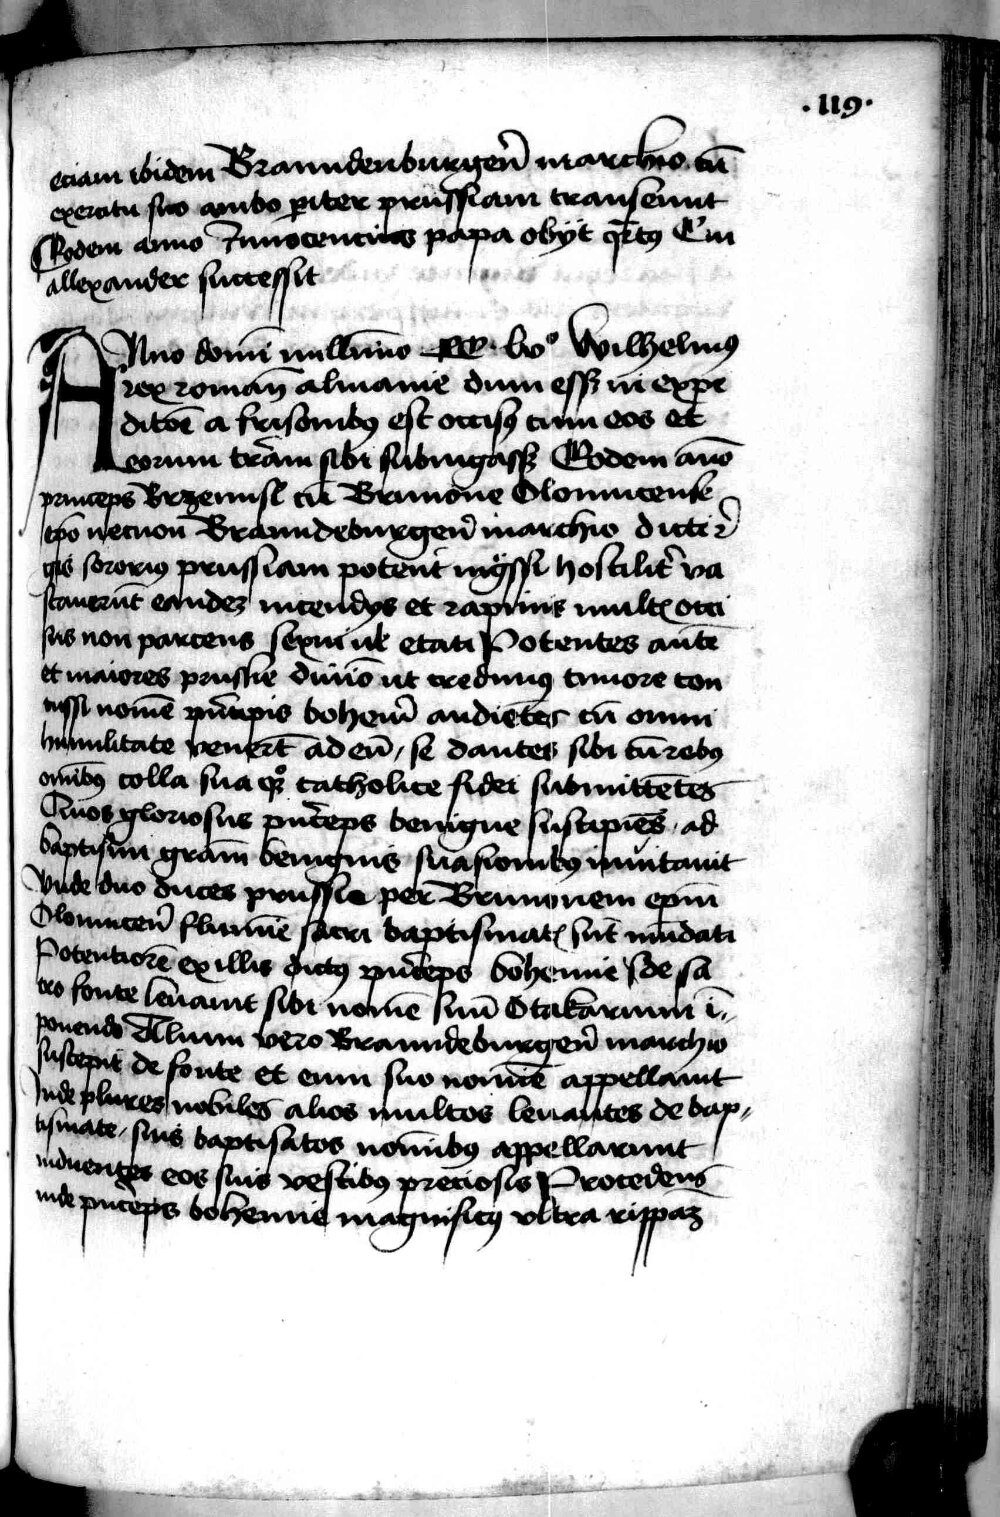 ·119·
eciam ibidem Branndenburgen̄ marchio cū
exercitu suo ambo piter prussiam transeunt
Eodem anno Innocencius papa obyt qrtꝯ Cui
allexander successit
Anno domī millīmo CC lvᵒ Wilhelmꝯ
rex romanꝝ almanie dum essꝫ in expe
ditōe a frisonibꝯ est occisꝯ cum eos et
eorum trām sibi subiugassꝫ Eodem anō
princeps Brzemisl cū Brunone Olomucense
epō necnon Branndeburgen̄ marchio dicti r̄
gis sororiꝯ prussiam potent̄ ingssi hostilit̄ va
stauerūt eandeꝫ incendys et rapinis multꝭ occi
sis non parcens sexui uł etati Potentes autē
et maiores prussie diuīo ut credimꝯ timore con
cussi nomē pn̄cipis bohem̄ audiētes cū omni
humilitate venerūt ad eū, se dantes sibi cū rebꝯ
omībꝯ colla sua qꝫ catholice fidei submittētes
Quos gloriosus pn̄ceps benigne suscipiēs, ad
baptismi grām benignis suasionibꝯ inuitauit
Vnde duo duces prussie per Brunonem epm̄
Olomucen̄ flumīe sacri baptismatꝭ sūt mūdati
Potentiorē ex illis dictꝯ pn̄ceps bohemie de sa
cro fonte leuauit sibi nomē suū Otakarum ī,,
ponendo Alium vero Branndeburgen̄ marchio
suscepit de fonte et eum suo nomīe appellauit
Inde plures nobiles alios multos leuantes de bap,,
tismate, suis baptisatos nomībꝯ appellarunt
induentes eos suis vestibꝯ preciosis Procedens
inde pn̄ceps bohemie magnificꝯ vltra rippaꝫ